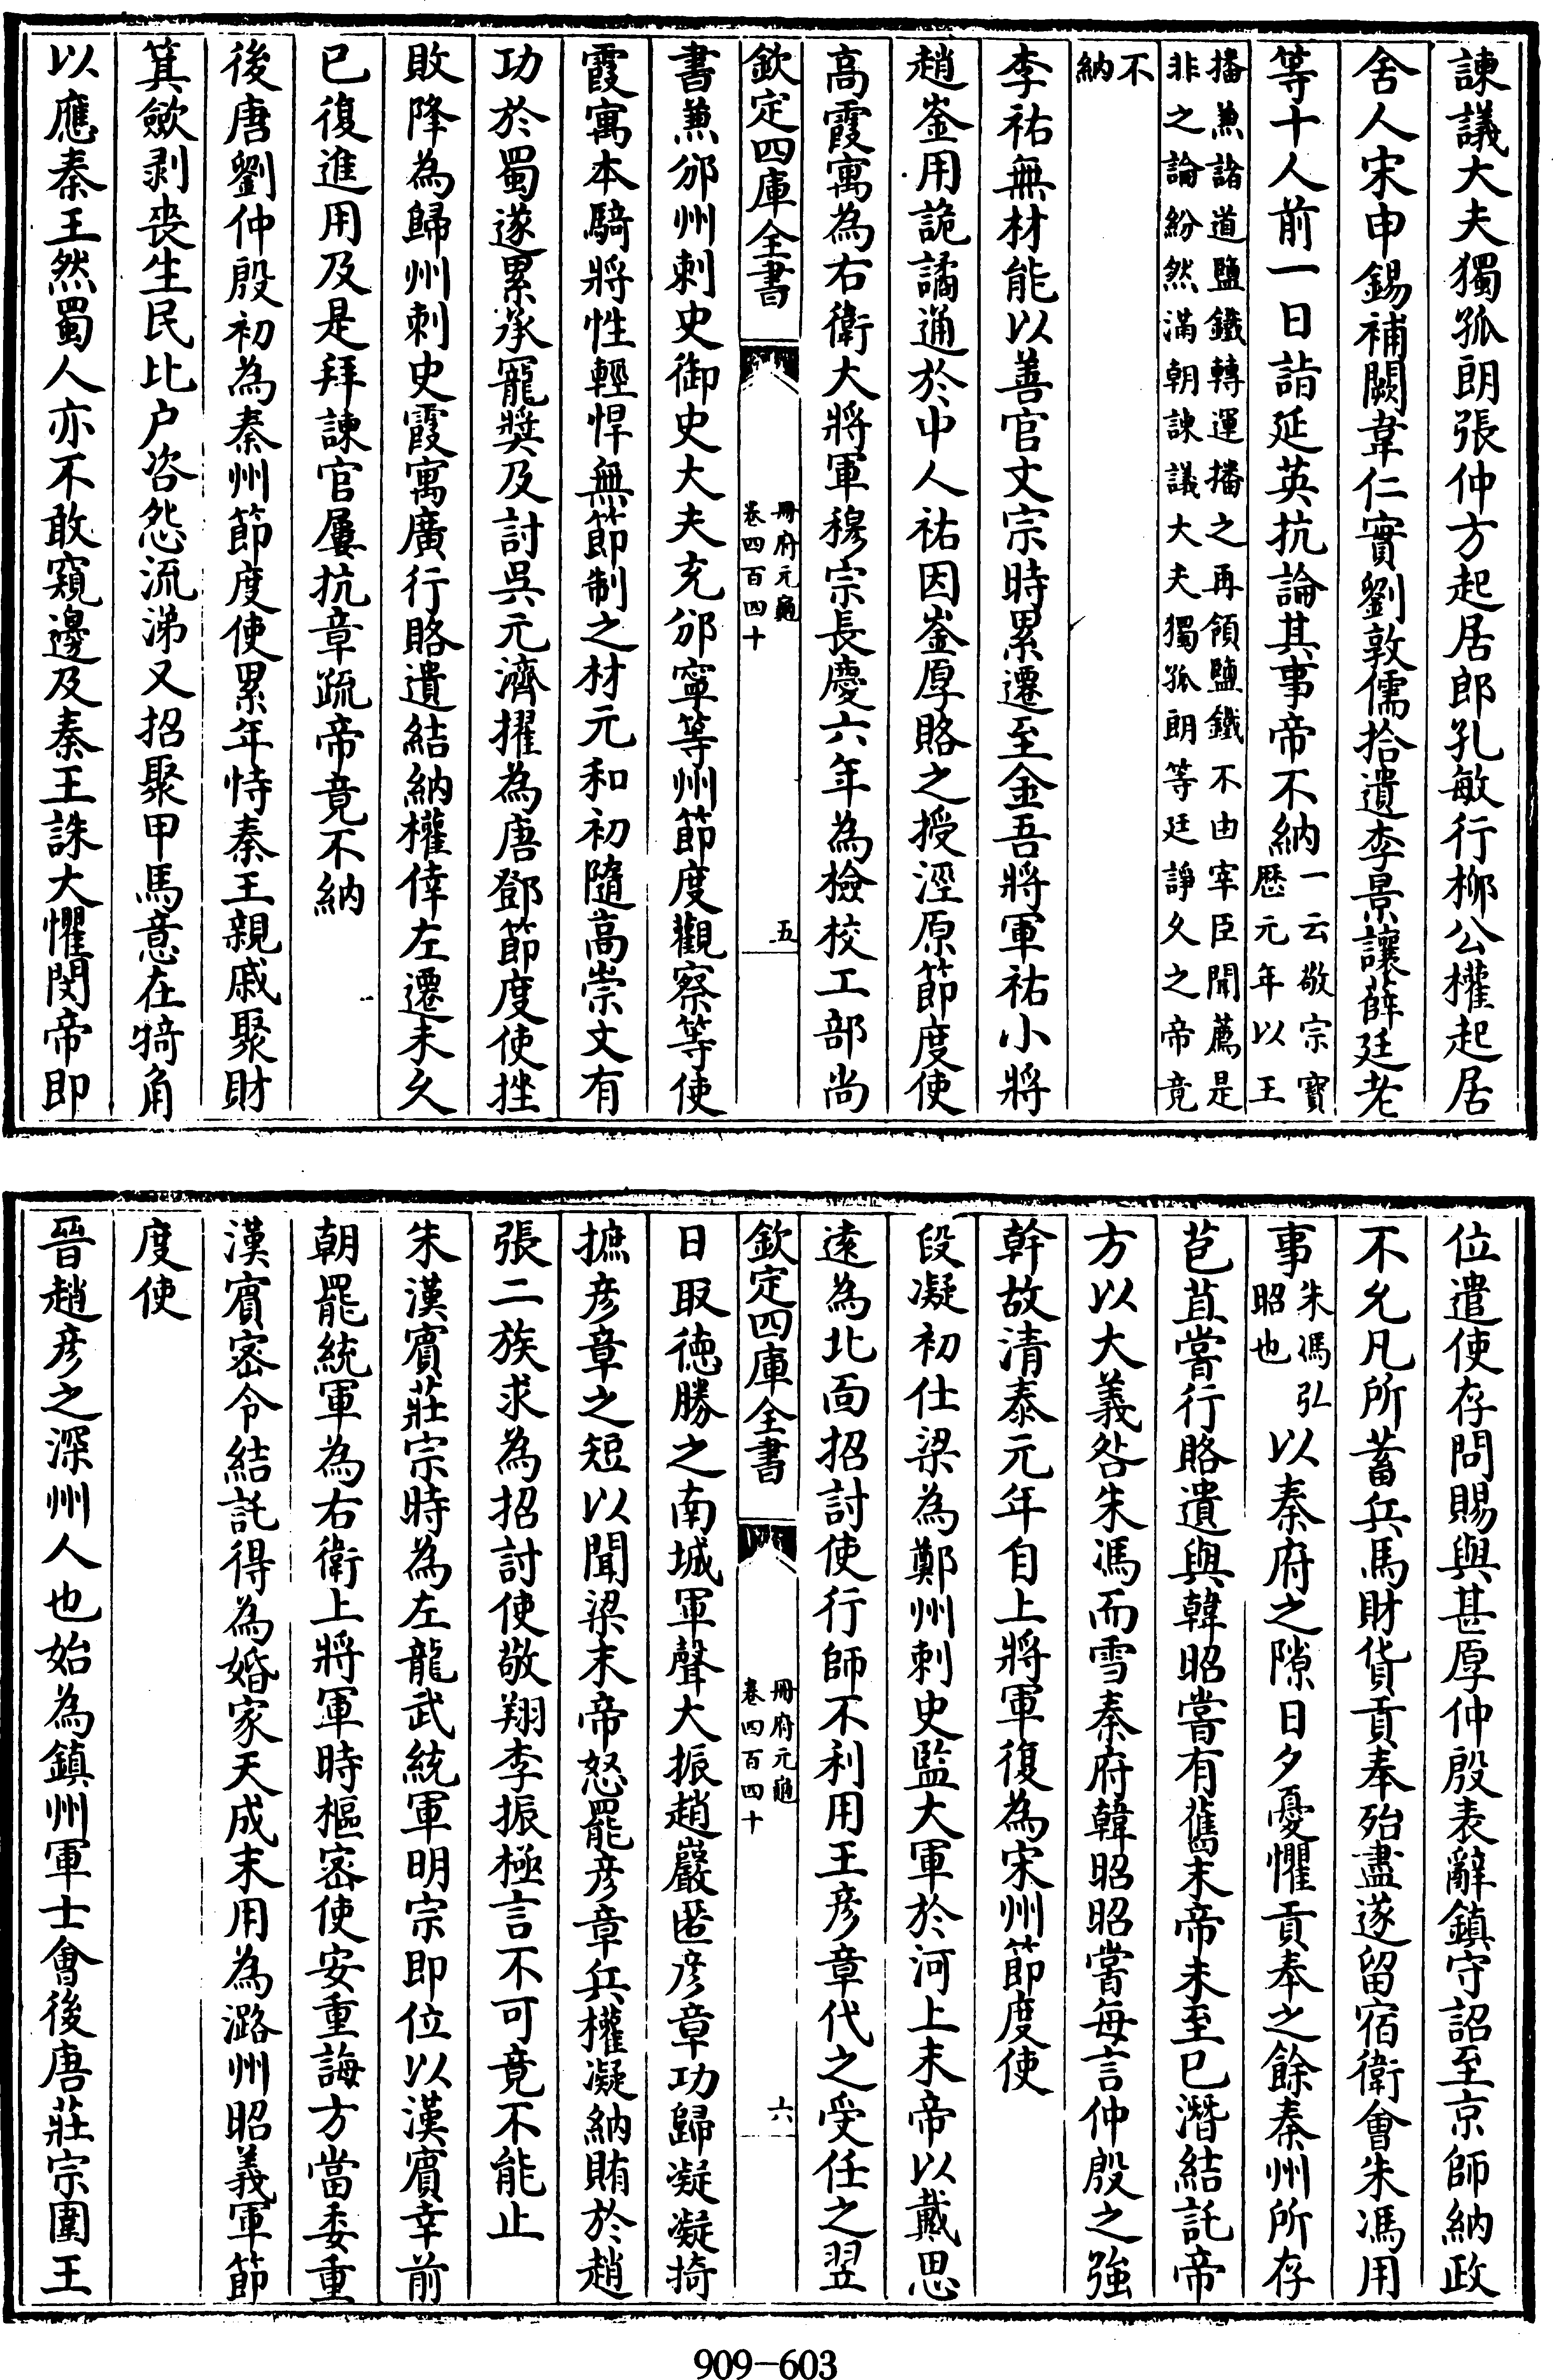 諫議大夫獨孤朗張仲方起居郎孔敏行柳公權起居
舍人宋申錫補闕韋仁實劉敦儒拾遺李景讓薛廷老
等十人前一日詣延英抗論其事帝不納一云敬宗寶
歷元年以王
播兼諸道鹽鐵轉運播之再領鹽鐵不由宰臣聞薦是
非之論紛然滿朝諫議大夫獨孤朗等廷諍久之帝竟
不
納
李祐無材能以善官文宗時累遷至金吾將軍祐小將
趙崟用詭譎通於中人祐因崟厚賂之授涇原節度使
高霞寓為右衛大將軍穆宗長慶六年為檢校工部尚
欽定四庫全書
冊府元龜
卷四百四十
五
書兼邠州刺史御史大夫充邠寧等州節度觀察等使
霞寓本騎將性輕悍無節制之材元和初隨高崇文有
功於蜀遂累承寵獎及討吳元濟擢為唐鄧節度使挫
敗降為歸州刺史霞寓廣行賂遺結納權倖左遷未久
已復進用及是拜諫官屢抗章疏帝竟不納
後唐劉仲殷初為秦州節度使累年恃秦王親戚聚財
箕斂剥喪生民比户咨怨流涕又招聚甲馬意在犄角
以應秦王然蜀人亦不敢窺邊及秦王誅大懼閔帝即
位遣使存問賜與甚厚仲殷表辭鎮守詔至京師納政
不允凡所蓄兵馬財貨貢奉殆盡遂留宿衛會朱馮用
事朱馮弘
昭也以秦府之隙日夕憂懼貢奉之餘秦州所存
苞苴嘗行賂遺與韓昭嘗有舊末帝未至已潛結託帝
方以大義咎朱馮而雪秦府韓昭昭嘗每言仲殷之強
幹故清泰元年自上將軍復為宋州節度使
段凝初仕梁為鄭州刺史監大軍於河上末帝以戴思
遠為北面招討使行師不利用王彥章代之受任之翌
欽定四庫全書
冊府元龜
卷四百四十
六
日取徳勝之南城軍聲大振趙巖匿彥章功歸凝凝掎
摭彥章之短以聞梁末帝怒罷彥章兵權凝納賄於趙
張二族求為招討使敬翔李振極言不可竟不能止
朱漢賓莊宗時為左龍武統軍明宗即位以漢賓幸前
朝罷統軍為右衛上將軍時樞密使安重誨方當委重
漢賓密令結託得為婚家天成末用為潞州昭義軍節
度使
晉趙彥之深州人也始為鎮州軍士會後唐莊宗圍王
909-603